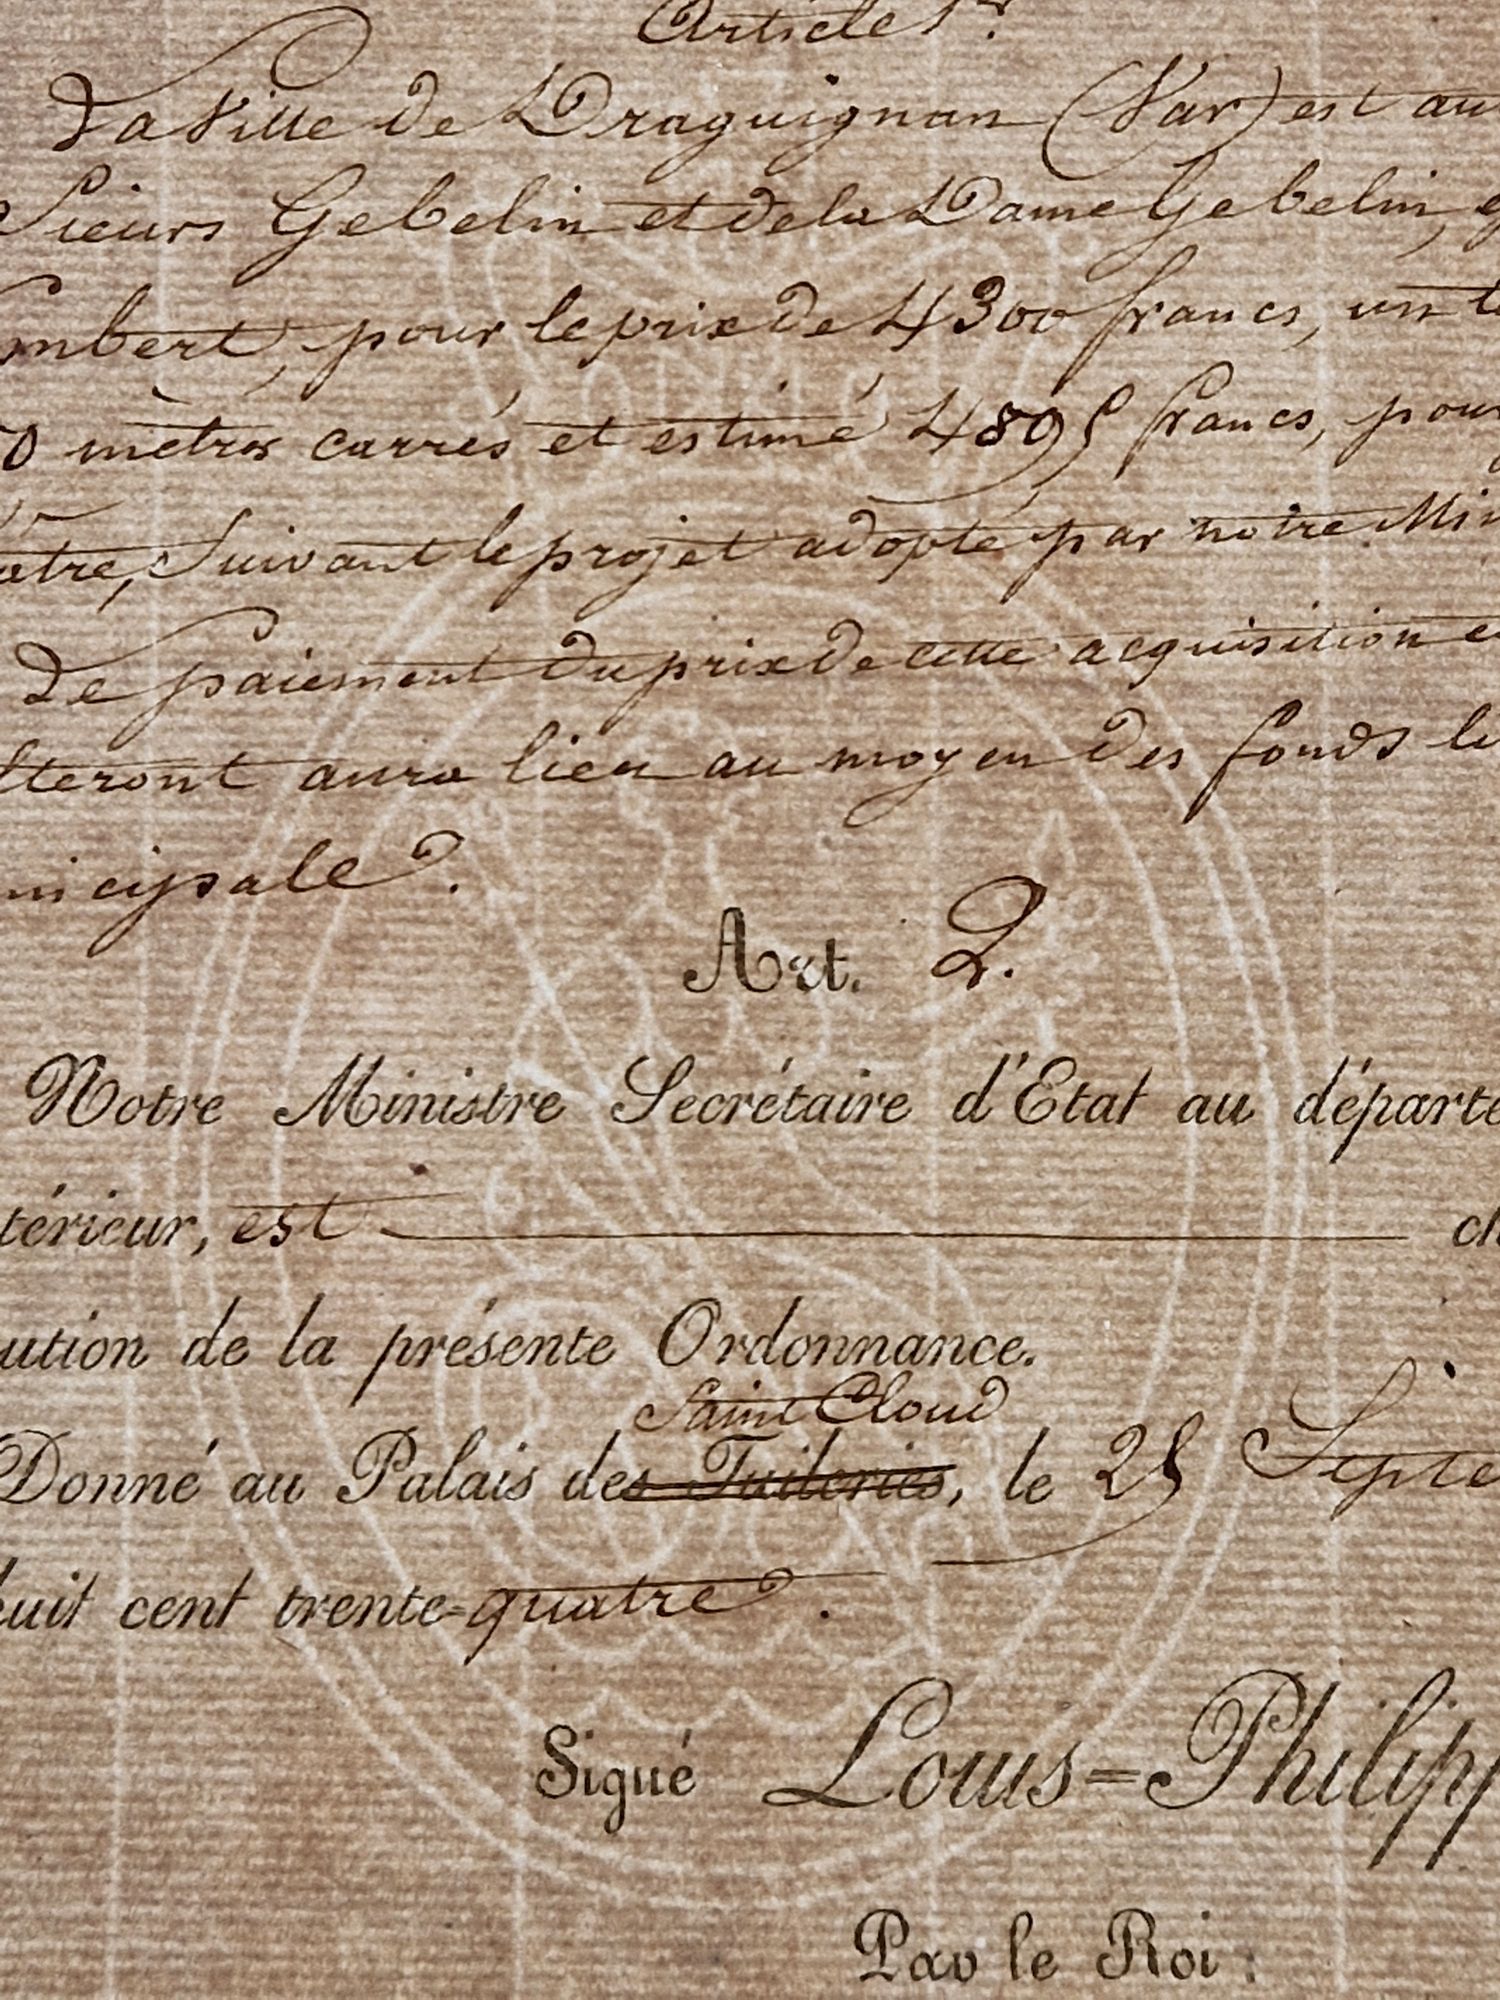 Article 1er.
La Ville de Draguignan (Var) est au
Sieurs Gebelin et de la Dame Gebelin,
mbert, pour le prix de 4300 francs, un
0 mètres carrés et estimé 4895 francs, pour
âtre, Suivant le projet adopté par notre Min
De paiement du prix de cette acquisition e
lteront aura lieu au moyen des fonds li
nicipale.
Art. 2.
Notre Ministre Secrétaire d'Etat au départe
térieur, est ch
ution de la présente Ordonnance.
Saint Cloud
Donné au Palais des Tuileries, le 25 Septe
huit cent trente=quatre.
Signé Louis=Philipp
Par le Roi :